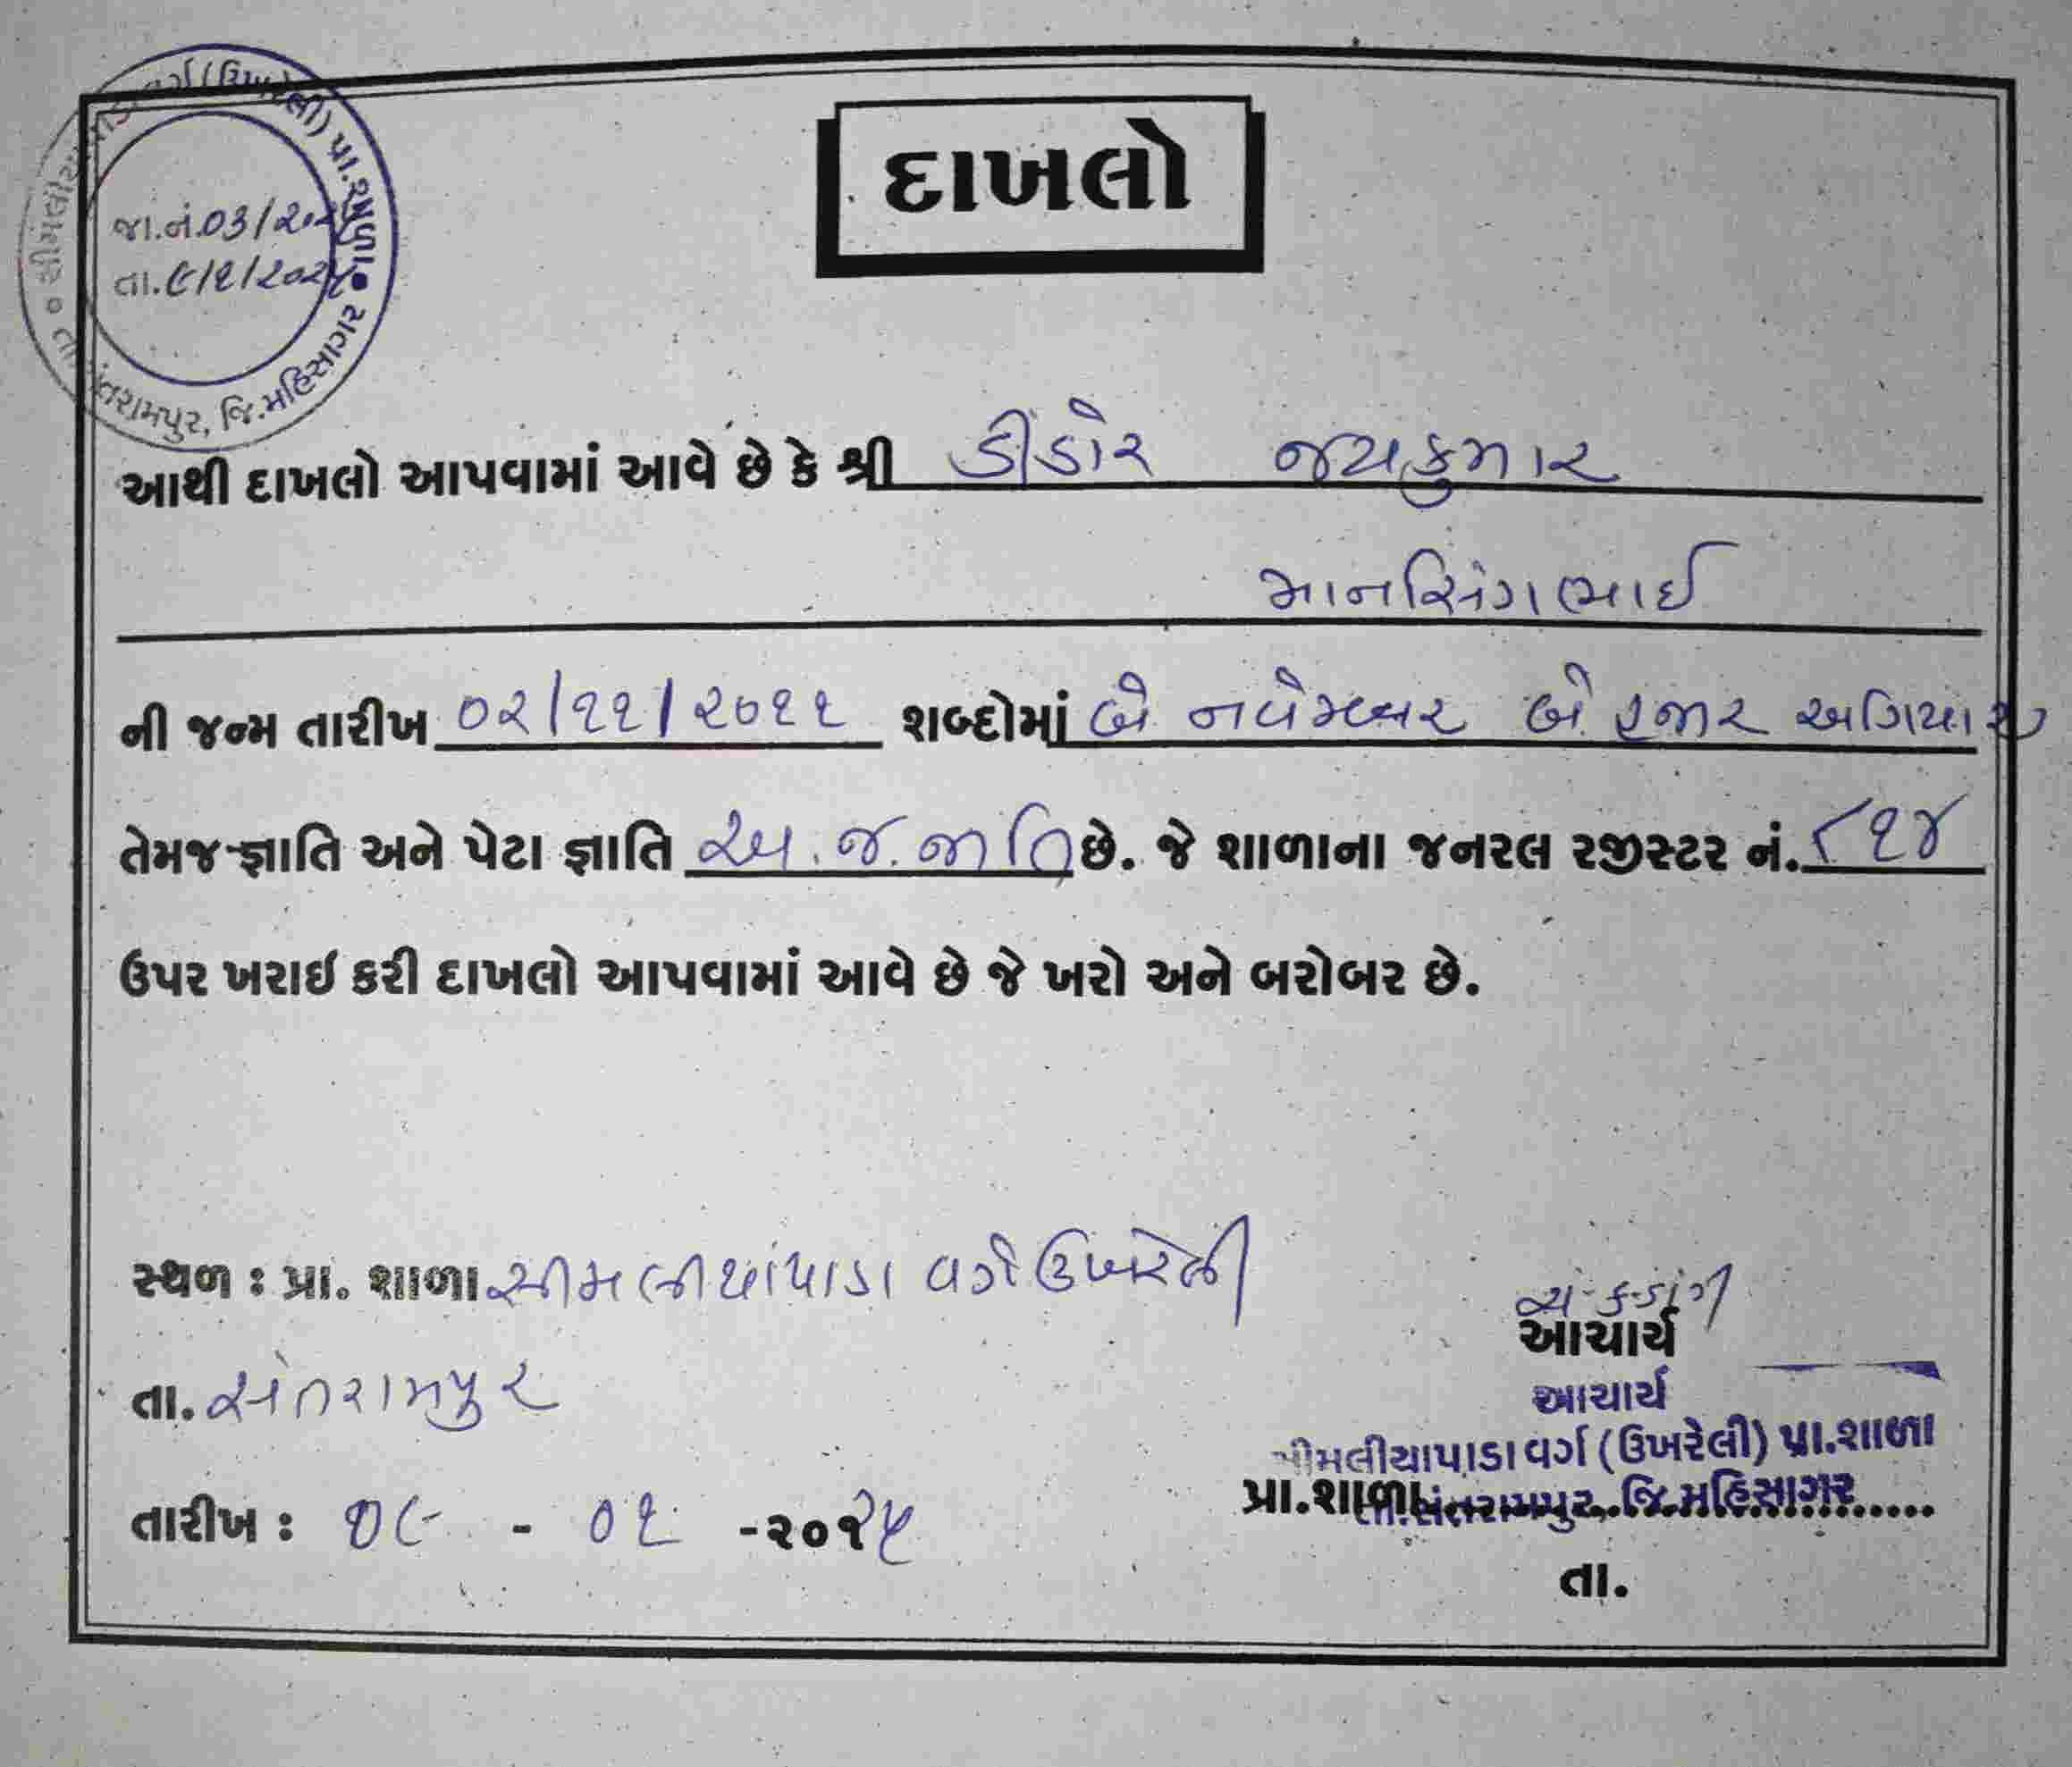 દાખલો
જા.નં.03/૨૦૨૫
તા.૯/૧/૨૦૨૫
પ્રા.શાળા
સંતરામપુર, જિ.મહિસાગર
આથી દાખલો આપવામાં આવે છે કે શ્રી ડીંડોર જયકુમાર
માનસિંગભાઈ
ની જન્મ તારીખ ૦૨/૧૧/૨૦૧૧ શબ્દોમાં બે નવેમ્બર બે હજાર અગિયાર
તેમજ જ્ઞાતિ અને પેટા જ્ઞાતિ અ.જ.જાતિ છે. જે શાળાના જનરલ રજીસ્ટર નં. ૮૧૪
ઉપર ખરાઇ કરી દાખલો આપવામાં આવે છે જે ખરો અને બરોબર છે.
સ્થળ : પ્રા. શાળા સીમલીયાપાડા વર્ગ ઉખરેલી
આચાર્ય
તા. સંતરામપુર
આચાર્ય
સીમલીયાપાડા વર્ગ (ઉખરેલી) પ્રા.શાળા
પ્રા.શાળા....................
તા.સંતરામપુર, જિ.મહિસાગર
તારીખ : ૦૯ - ૦૧ -૨૦૨૫
તા.